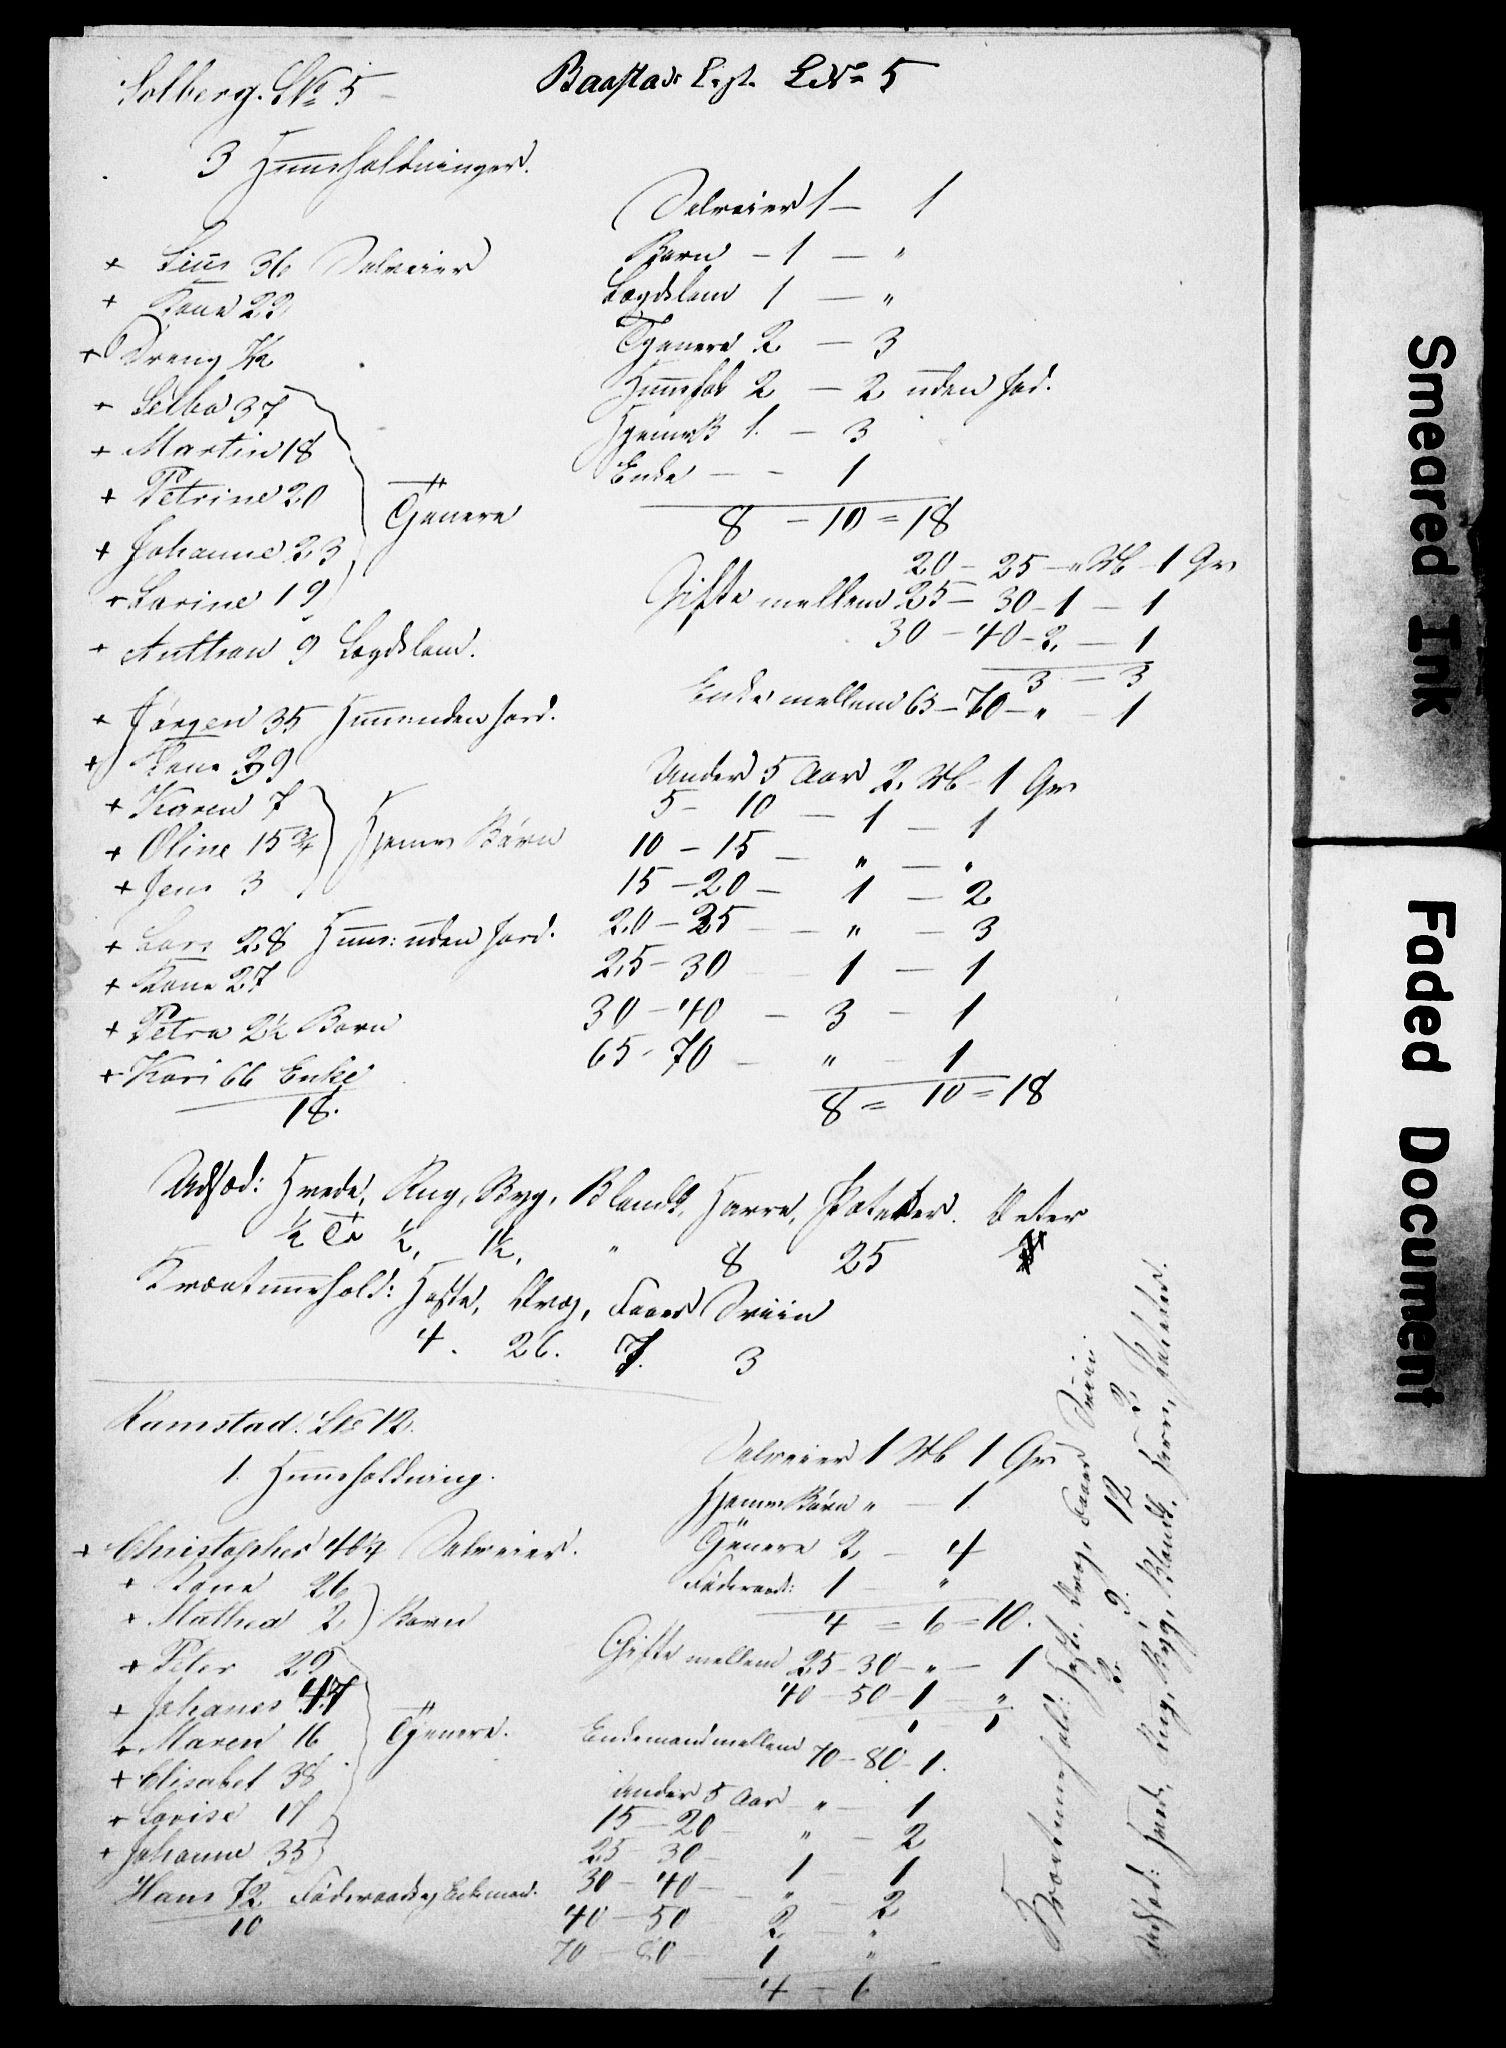 Solberg. LNo 5
Baastad Sogn. LNo 5
3 Huusholdninger.
+ Siur 36 Selveier
+ Kone 22
+ Dreng 1/2
+ Selba 37
+ Martin 18
+ Petrine 20
+ Johanne 23
+ Karine 19
Tjenere
+ Anthon 9 Lægdslem.
+ Jørgen 35 Huusm uden Jord.
+ Kone 39
+ Karen 7
+ Oline 15 3/4
+ Jens 3
Hjemv Børn
+ Lars 28 Huusm: uden Jord.
+ Kone 27
+ Petra 2 1/2 Barn
+ Kari 66 Enke
18.
Selveier 1 — 1
Barn — 1 — "
Lægdslem 1 — "
Tjenere 2 — 3
Huusfol 2 — 2 uden Jod.
HjemvB 1. — 3
Enke — — 1
8 — 10 = 18
20 — 25 — " Mk — 1 Qv
Gifte mellem 25 — 30 — 1 — 1
30 — 40 — 2. — 1
3 — 3
Enke mellem 65 — 70 — " — 1
Under 5 Aar 2. Mk 1 Qv
5 — 10 — 1 — 1
10 — 15 — " — "
15 — 20 — 1 — 2
20 — 25 — " — 3
25 — 30 — 1 — 1
30 — 40 — 3 — 1
65 — 70 — " — 1
8 = 10 = 18
Udsæd: Hvede, Rug, Byg, Blandk, Havre, Poteter. Erter
1/2 Tø 1/2, 1 1/2, " 8 25
Kreaturhold: Heste, Qvæg, Faar Sviin
4. 26. 7. 3
Ramstad. LNo 12.
1. Huusholdning.
+ Christopher 44 Selveier.
+ Kone 26
+ Mathea 2 Barn
+ Peter 29
+ Johanes 47
+ Maren 16
+ Elisabet 38
+ Lovise 17
+ Johanne 35
Tjenere.
Hans 72 Føderaads Enkemand.
10
Selveier 1 Mk 1 Qv
Hjemv Børn " — 1
Tjenere 2 — 4
Føderaads: 1 — "
4 = 6 = 10.
Gifte mellem 25 — 30 — " — 1
40 — 50 — 1 — "
1 — 1
Enkemand mellem 70 — 80 — 1.
Under 5 Aar — " — 1
15 — 20 — " — 2
25 — 30 — 1 — 1
30 — 40 — " — 2
40 — 50 2 — "
70 — 80 — 1 "
4 — 6
Kreaturhold: Heste, Qvæg, Faar Sviin.
2. 9. 12 2
Udsæd: Hvede, Rug, Byg, Blandk, Havre, Poteter.
Smeared Ink
Faded Document